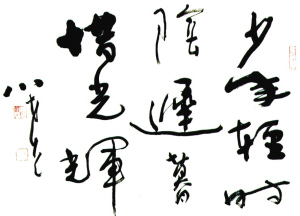 少年輕时
陰遲暮
惜光輝